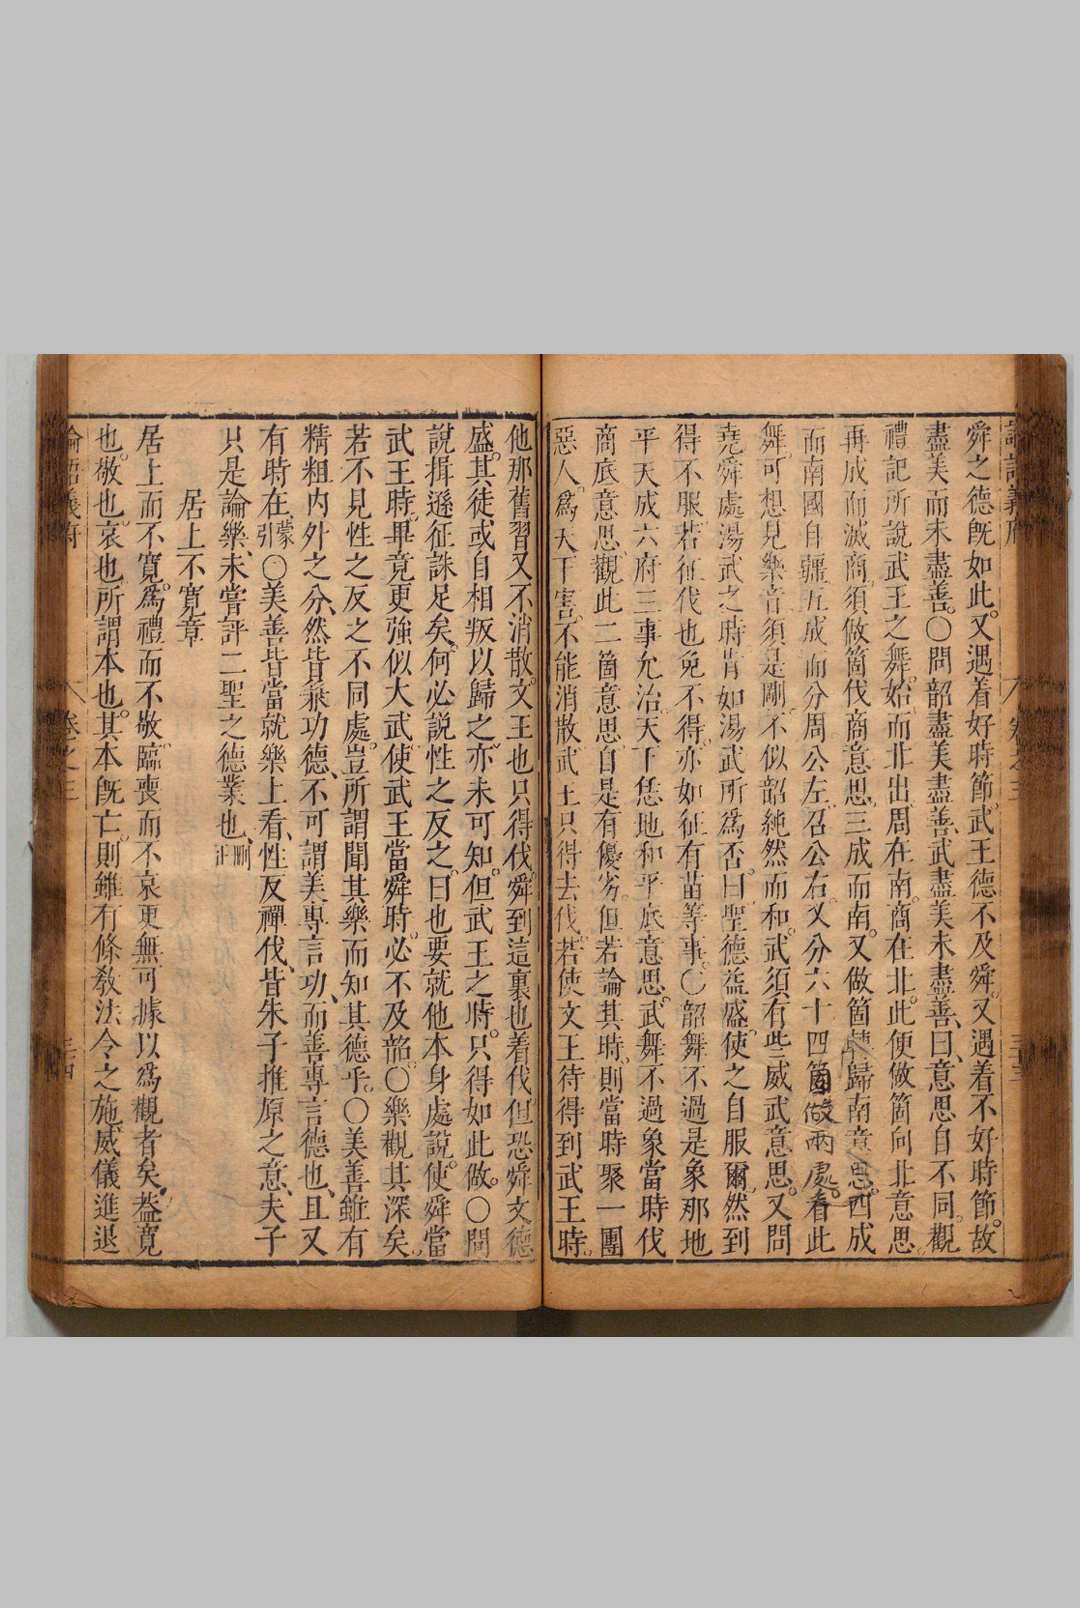 舜之德旣如此。又遇着好時節。武王德不及舜。又遇着不好時節。故
盡美而未盡善。〇問韶盡美盡善、武盡美未盡善、曰、意思自不同。觀
禮記所說武王之舞。始而北出、周在南。商在北。此便做箇向北意思。
再成而滅商。須做箇伐商意思。三成而南。又做箇轉歸南意思。四成
而南國自疆。五成而分。周公左。召公右。又分六十四箇做兩處。看此
舞。可想見樂音須是剛。不似韶純然而和。武須有些威武意思。又問
堯舜處湯武之時肯如湯武所爲否。曰、聖德益盛。使之自服爾。然到
得不服。若征伐也免不得。亦如征有苗等事。〇韶舞不過是象那地
平天成六府三事允治。天下恁地和平底意思。武舞不過象當時伐
商底意思。觀此二箇意思。自是有優劣。但若論其時。則當時聚一團
惡人。爲天下害。不能消散。武王只得去伐。若使文王待得到武王時。
他那舊習又不消散。文王也只得伐。舜到這裏也着伐。但恐舜文德
盛。其徒或自相叛以歸之。亦未可知。但武王之時。只得如此做。〇問
說揖遜征誅足矣。何必說性之反之。曰也要就他本身處說。使舜當
武王時。畢竟更強似大武。使武王當舜時。必不及韶。〇樂觀其深矣。
若不見性之反之不同處。豈所謂聞其樂而知其德乎。〇美善雖有
精粗內外之分、然皆兼功德、不可謂美專言功、而善專言德也、且又
有時在、蒙引〇美善皆當就樂上看、性反禪伐、皆朱子推原之意、夫子
只是論樂、未嘗評二聖之德業也、刪正
居上不寬章
居上而不寬。爲禮而不敬。臨喪而不哀。更無可據以爲觀者矣。葢寬
也。敬也。哀也。所謂本也。其本旣亡。則雖有條敎法令之施。威儀進退
論語義府
卷之三
三四